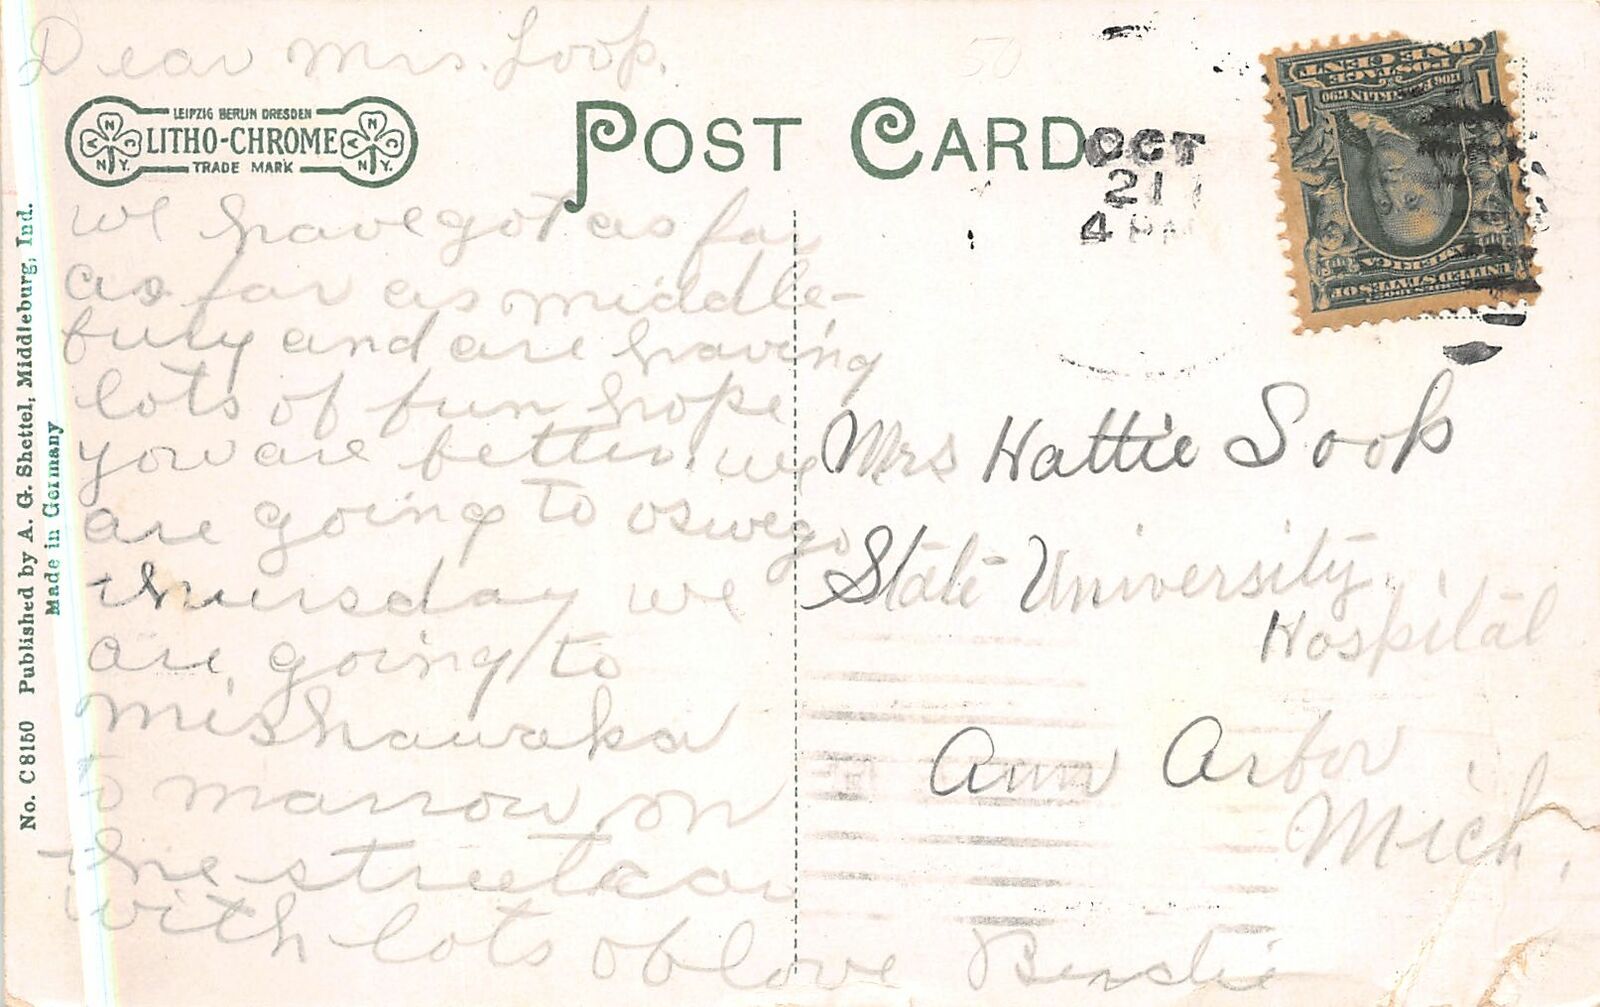 Dear Mrs. Loop.
LEIPZIG BERLIN DRESDEN
LITHO-CHROME
TRADE MARK
N.Y.
N.Y.
POST CARD
OCT
21
4 PM
ONE CENT
POSTAGE
1 1
FRANKLIN 1790
UNITED STATES OF
AMERICA
No. C8150 Published by A. G. Shettel, Middleburg, Ind.
Made in Germany
we have got as far
as far as middle-
bury and are having
lots of fun hope
you are better. we
are going to oswego
thursday we
are going to
mishawaka
to marrow on
the streetcar
with lots of love Birdie
Mrs Hattie Loop
State University
Hospital
Ann Arbor
Mich.